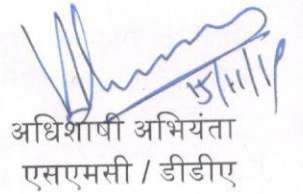 15/11/19
अधिशाषी अभियंता
एसएमसी / डीडीए